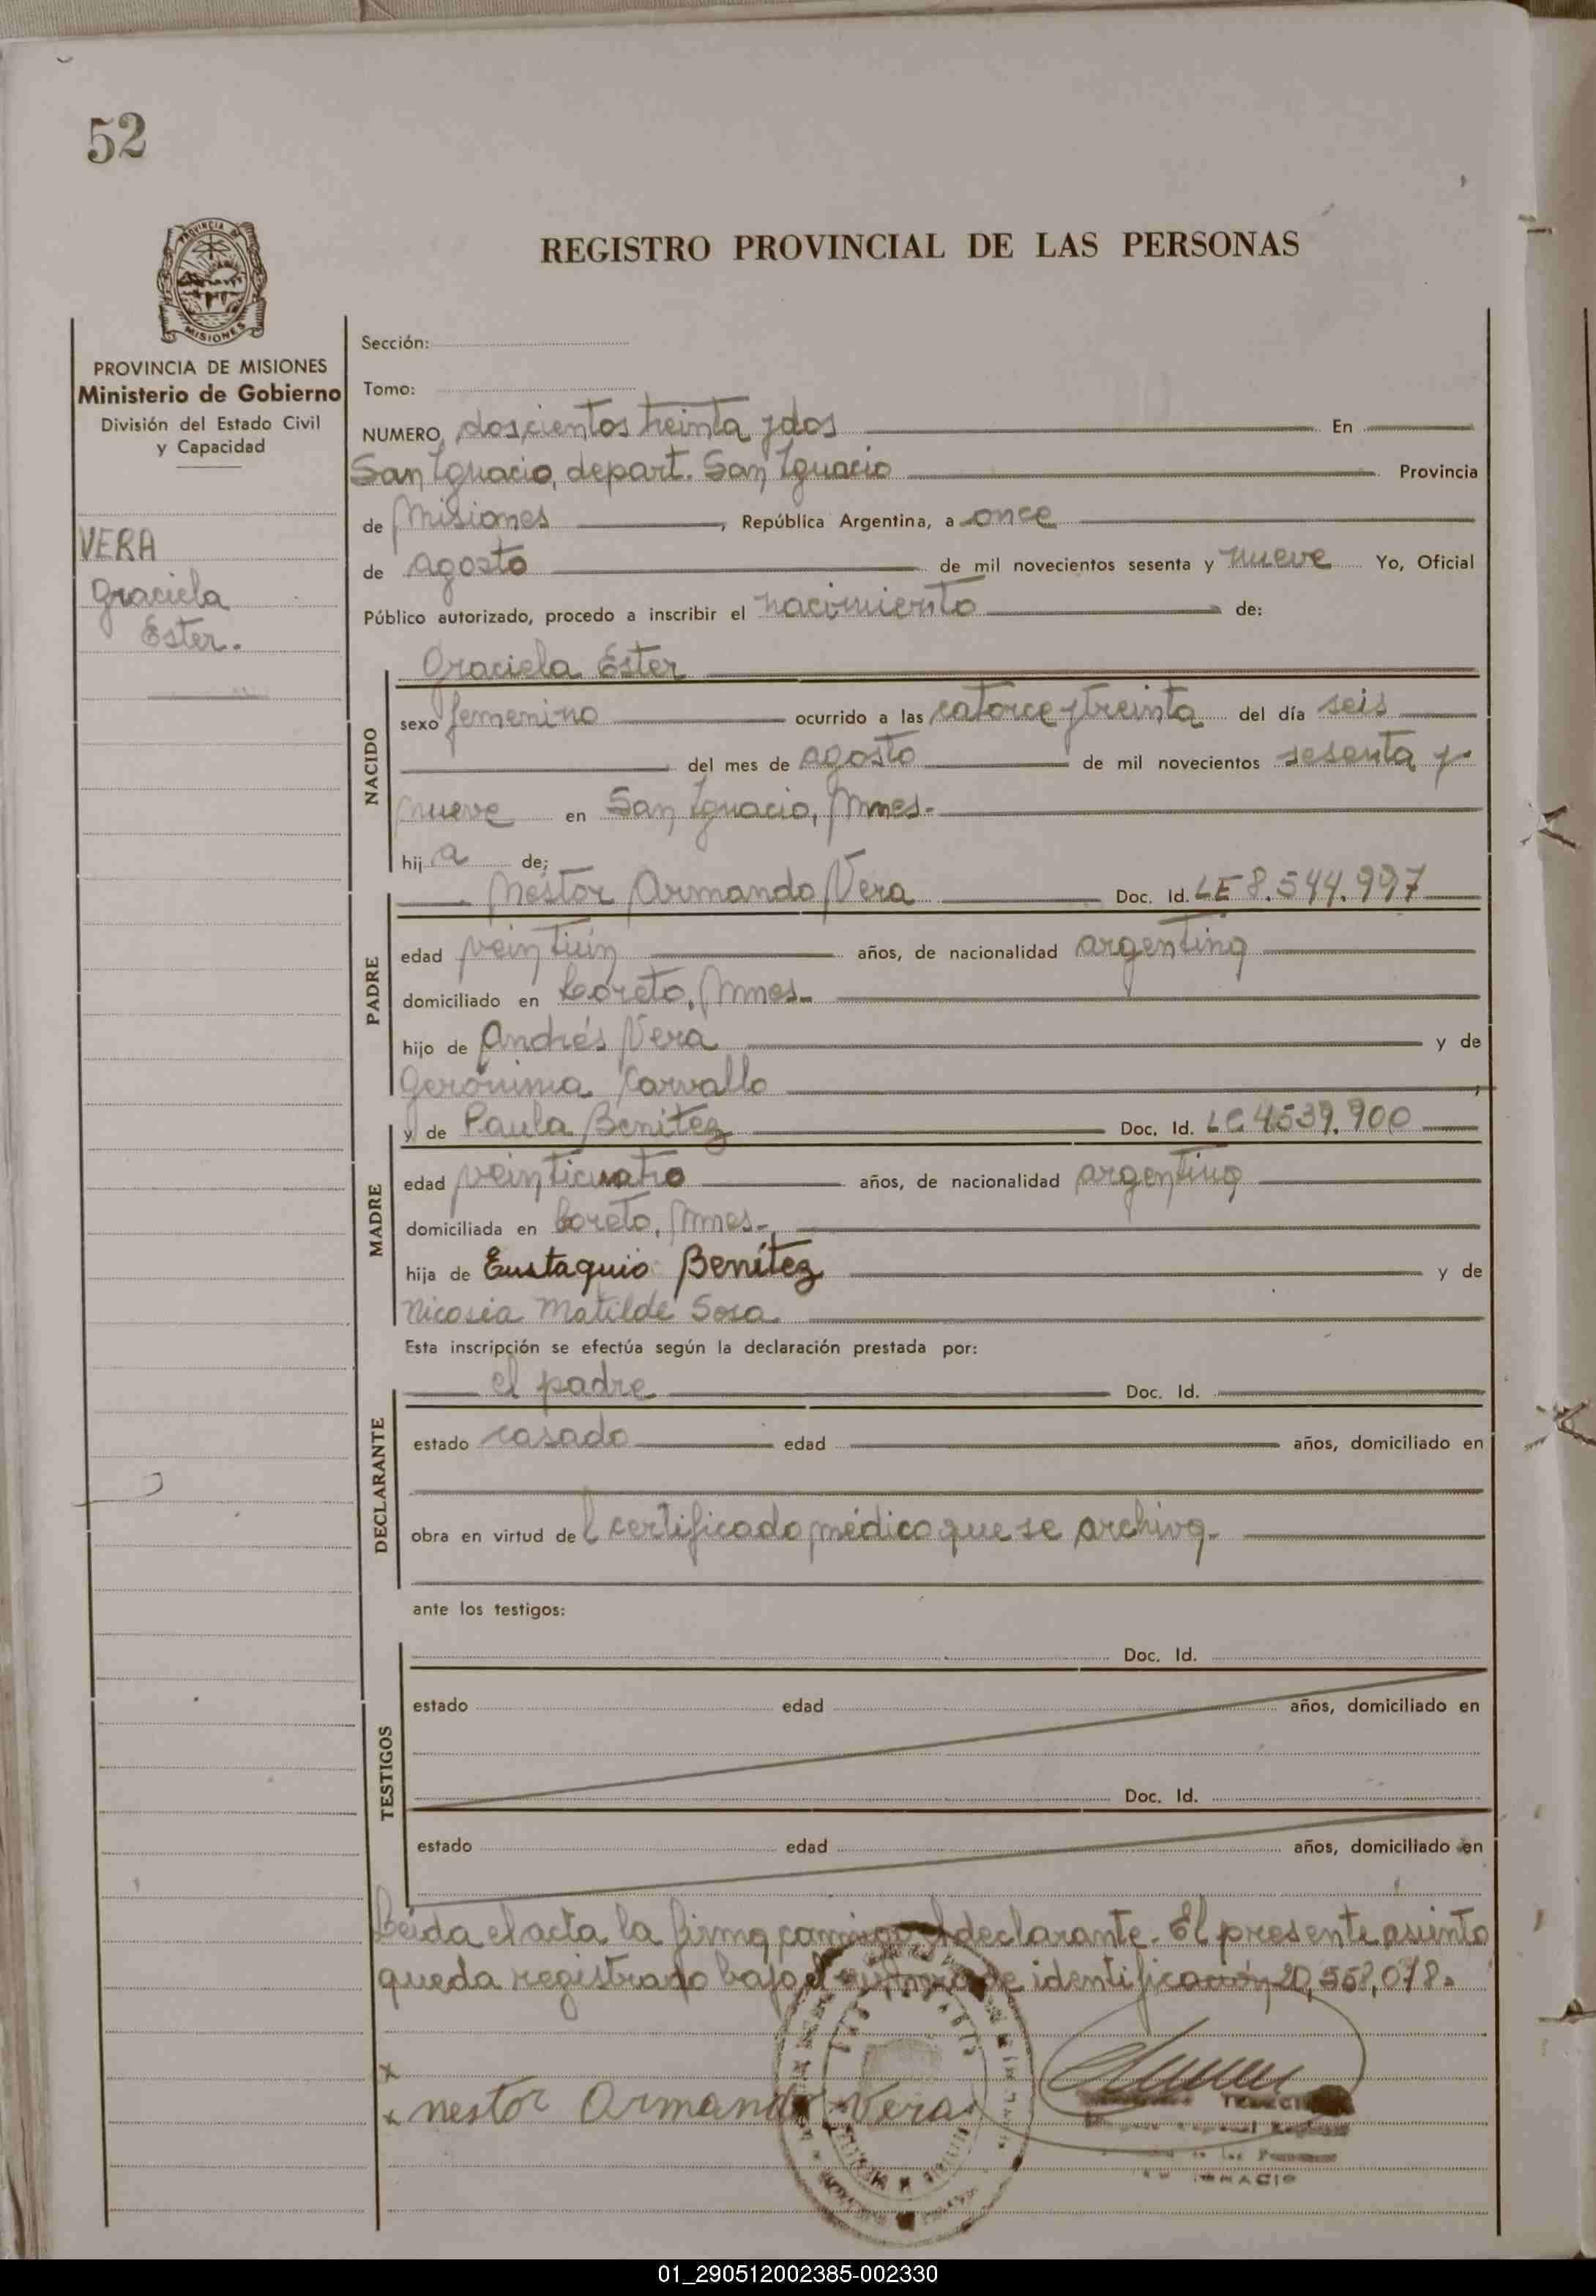 52
PROVINCIA DE
MISIONES
REGISTRO PROVINCIAL DE LAS PERSONAS
PROVINCIA DE MISIONES
Ministerio de Gobierno
División del Estado Civil
y Capacidad
VERA
Graciela
Ester.
Sección:
Tomo:
NUMERO doscientos treinta y dos En
San Ignacio, depart. San Ignacio Provincia
de Misiones, República Argentina, a once
de agosto de mil novecientos sesenta y nueve Yo, Oficial
Público autorizado, procedo a inscribir el nacimiento de:
NACIDO
Graciela Ester
sexo femenino ocurrido a las catorce y treinta del día seis
del mes de agosto de mil novecientos sesenta y
nueve en San Ignacio, Mnes.
hija de;
PADRE
Néstor Armando Vera Doc. Id. LE 8.544.997
edad veintiún años, de nacionalidad argentina
domiciliado en Loreto, Mnes.
hijo de Andrés Vera y de
Gerónima Carvallo;
MADRE
y de Paula Benitez Doc. Id. LC 4539.900
edad veinticuatro años, de nacionalidad argentina
domiciliada en Loreto, Mnes.
hija de Eustaquio Benítez y de
Nicasia Matilde Sosa
Esta inscripción se efectúa según la declaración prestada por:
DECLARANTE
el padre Doc. Id.
estado casado edad años, domiciliado en
obra en virtud del certificado médico que se archiva.
ante los testigos:
TESTIGOS
Doc. Id.
estado edad años, domiciliado en
Doc. Id.
estado edad años, domiciliado en
Leida el acta la firma conmigo el declarante. El presente asiento
queda registrado bajo el número de identificación 20,558,078.
x
x nestor Armando Vera
01_290512002385-002330